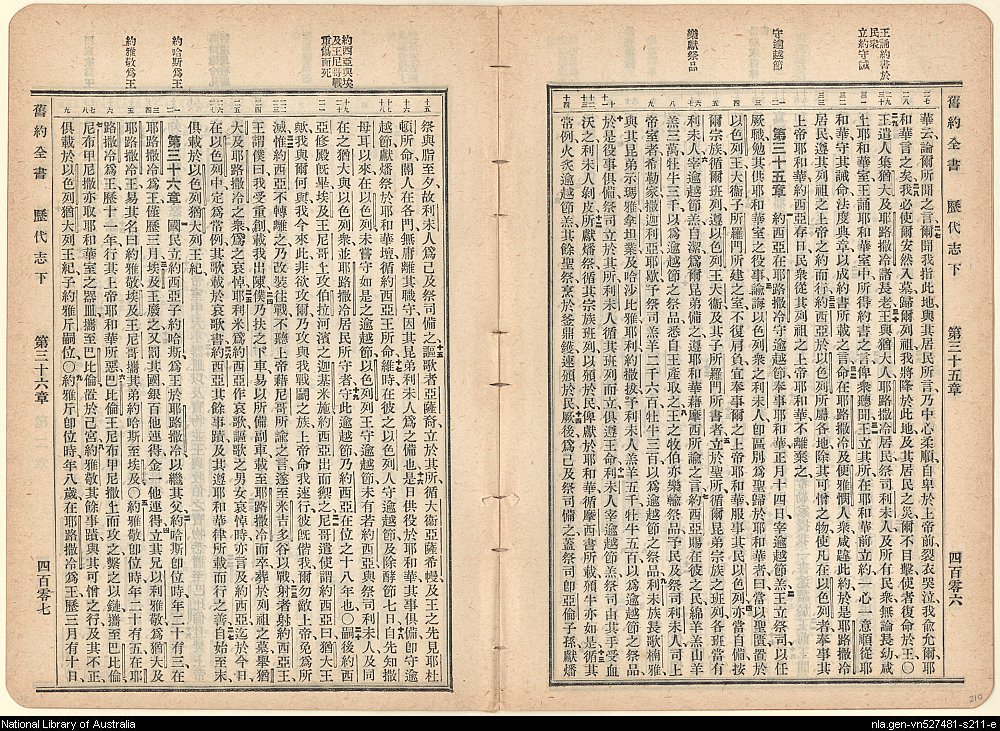 舊約全書　歷代志下　第三十五章　四百零六
王誦約書於
民衆
立約守誡
守逾越節
樂獻祭品
華云論爾所聞之言爾聞我指此地與其居民所言乃中心柔順自卑於上帝前裂衣哭泣我俞允爾耶
和華言之矣我必使爾安然入墓歸爾列祖我將降於此地及其居民之災爾不目擊使者復命於王〇
王遣人集猶大及耶路撒冷諸長老王與猶大人耶路撒冷居民祭司利未人及所有民衆無論長幼咸
上耶和華室王誦耶和華室中所得約書之言俾衆聽聞王立於其所在耶和華前立約一心一意順從耶
和華守其誡命法度典章以成約書所載之言命在耶路撒冷及便雅憫人衆咸從此約於是耶路撒冷
居民遵其列祖之上帝之約而行約西亞於以色列所屬各地除其可憎之物使凡在以色列者奉事其
上帝耶和華約西亞存日民衆從其列祖之上帝耶和華不離棄之
第三十五章　約西亞在耶路撒冷守逾越節奉事耶和華正月十四日宰逾越節羔王立祭司以任
厥職勉其供耶和華室之役事諭誨以色列衆之利未人卽區別爲聖歸於耶和華者曰當以聖匱置於
以色列王大衞子所羅門所建之室不復肩負宜奉事爾之上帝耶和華服事其民以色列亦當自備按
爾宗族循爾班列遵以色列王大衞及其子所羅門所書者立於聖所循爾昆弟宗族之班列各班當有
利未人宰逾越節羔自潔爲爾昆弟備之遵耶和華藉摩西所諭之言約西亞賜在彼之民綿羊羔山羊
羔三萬牡牛三千以爲逾越節之祭品悉自王產取之王之牧伯亦樂輸祭品予民及祭司利未人司上
帝室者希勒家撒迦利亞耶歇予祭司羔羊二千六百牡牛三百以爲逾越節之祭品利未族長歌楠雅
與其昆弟示瑪雅拿坦業及哈沙比雅耶利約撒拔予利未人羔羊五千牡牛五百以爲逾越節之祭品
於是役事俱備祭司立於其所利未人循其班列而立俱遵王命利未人宰逾越節羔祭司由其手受血
沃之利未人剝皮所獻燔祭循其宗族班列以頒於民俾獻於耶和華循摩西書所載頒牛亦如是循其
常例火炙逾越節羔其餘聖祭烹於釜鼎鑊速頒於民厥後爲己及祭司備之蓋祭司卽亞倫子孫獻燔
約西亞與埃
及王尼哥戰
重傷而死
約哈斯爲王
約雅敬爲王
祭與脂至夕故利未人爲己及祭司備之謳歌者亞薩裔立於其所循大衞亞薩希幔及王之先見耶杜
頓所命閽人在各門無庸離其職守因其昆弟利未人爲之備也是日供役於耶和華其事俱備卽守逾
越節獻燔祭於耶和華壇循約西亞王所命維時在彼之以色列人守逾越節及除酵節七日自先知撒
母耳以來在以色列未嘗守如是之逾越節以色列列王守逾越節未有若約西亞與祭司利未人及同
在之猶大與以色列衆並耶路撒冷居民所守者守此逾越節乃約西亞在位之十八年也〇嗣後約西
亞修殿旣畢埃及王尼哥上攻伯拉河濱之迦基米施約西亞出而禦之尼哥遣使謂約西亞曰猶大王
歟我與爾何與我今來此非欲攻爾乃攻與我戰鬬之族上帝命我速行彼旣偕我爾勿敵上帝免爲所
滅惟約西亞不轉離之乃改裝往戰不聽上帝藉尼哥所諭之言遂至米吉多谷以戰射者射約西亞王
王謂僕曰我受重創載我出陳僕乃扶之下車易以所備副車載至耶路撒冷而卒葬於列祖之墓舉猶
大及耶路撒冷之衆爲之哀悼耶利米爲約西亞作哀歌謳歌之男女哀悼時亦言及約西亞迄於今日
在以色列中定爲常例其歌載於哀歌書約西亞其餘事蹟及其遵耶和華律所載而行之善自始至末
俱載於以色列猶大列王紀
第三十六章　國民立約西亞子約哈斯爲王於耶路撒冷以繼其父約哈斯卽位時年二十有三在
耶路撒冷爲王僅歷三月埃及王廢之又罰其國銀百他連得金一他連得立其兄以利雅敬爲猶大及
耶路撒冷王易其名曰約雅敬埃及王尼哥攜其弟約哈斯至埃及〇約雅敬卽位時年二十有五在耶
路撒冷爲王歷十一年行其上帝耶和華所惡巴比倫王尼布甲尼撒上而攻之繫之以鏈攜至巴比倫
尼布甲尼撒亦取耶和華室之器皿攜至巴比倫置於己宮約雅敬其餘事蹟與其可憎之行及其不正
俱載於以色列猶大列王紀子約雅斤嗣位〇約雅斤卽位時年八歲在耶路撒冷爲王歷三月有十日
舊約全書　歷代志下　第三十六章　四百零七
210
National Library of Australia
nla.gen-vn527481-s211-e